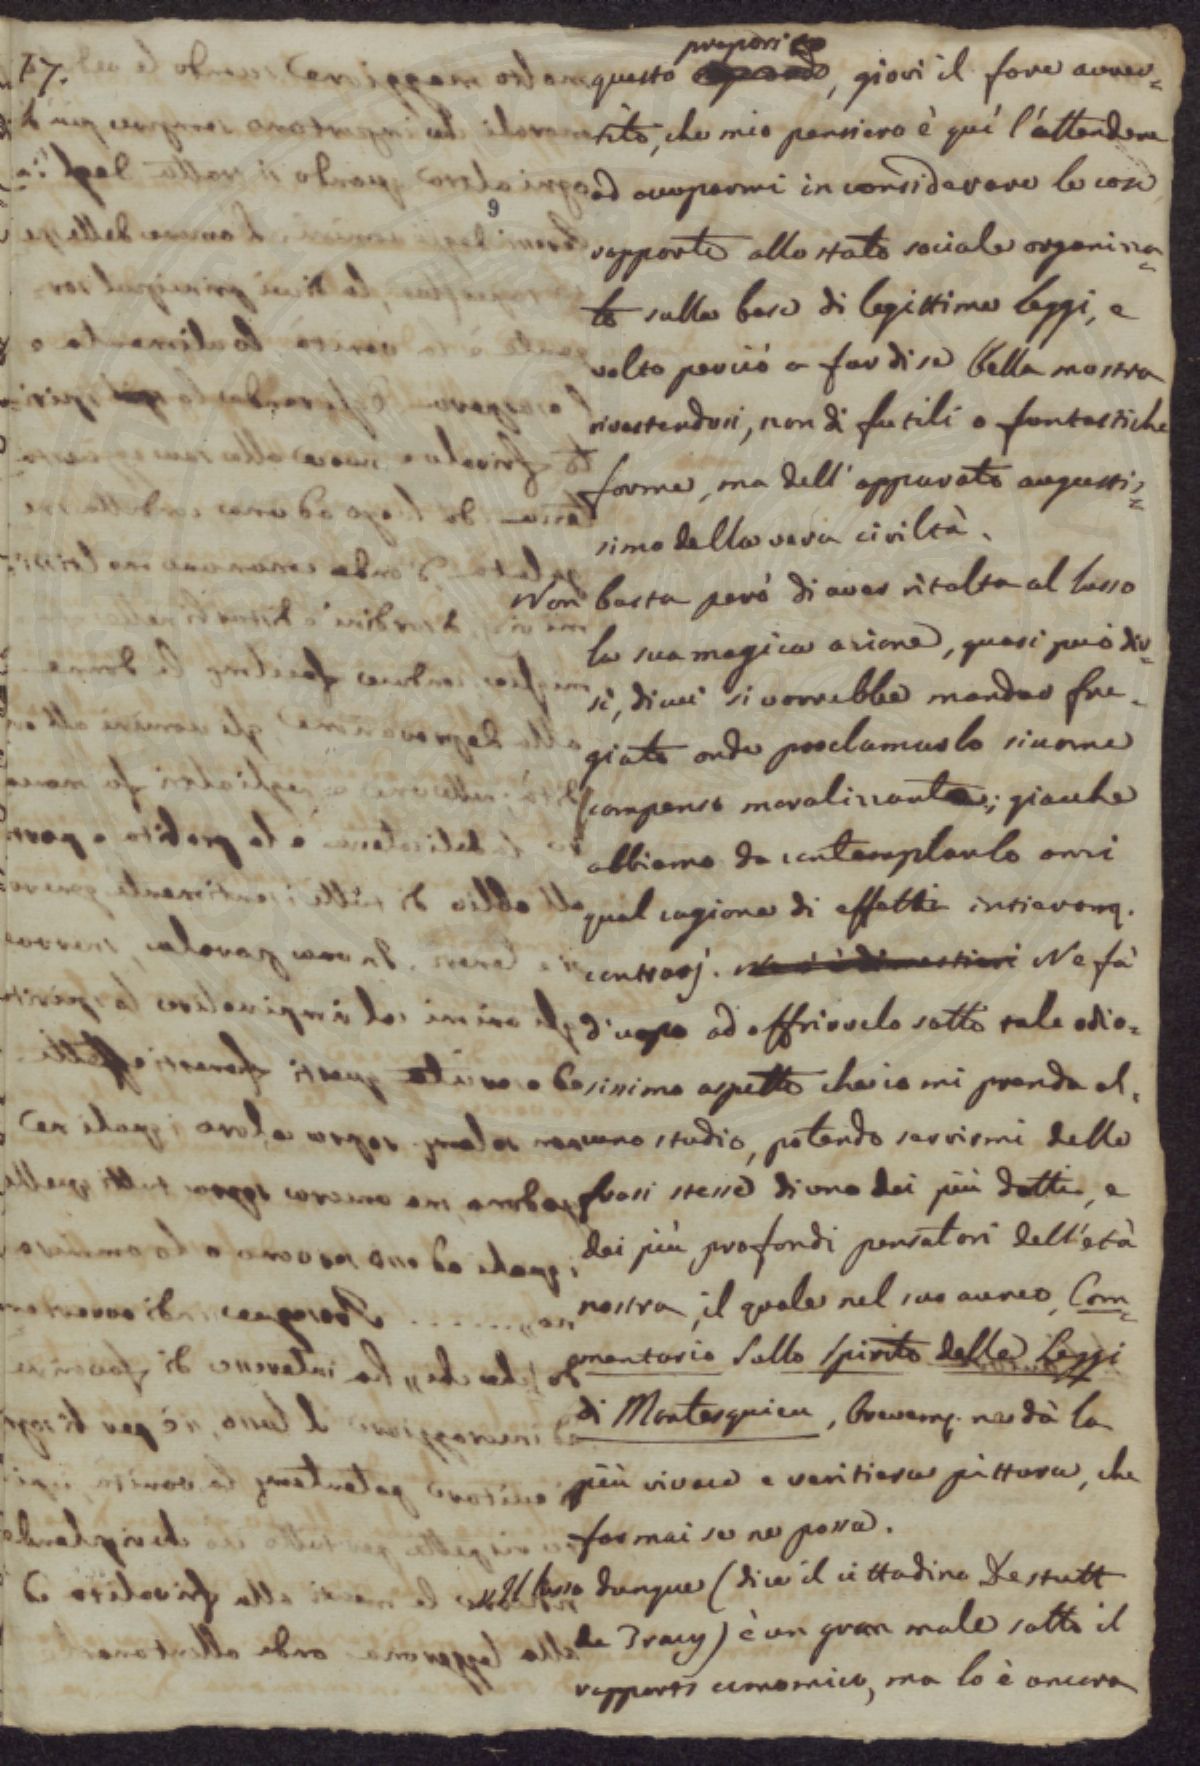 77.
proposito
questo, giovi il fare avver-
tito, che mio pensiero è quì l'attendere
ad occuparmi in considerare le cose
9
rapporto allo stato sociale organizza-
to sulla base di legittime leggi, e
volto perciò a far di se bella mostra
rivestendosi, non di futili o fantastiche
forme, ma dell'apparato augustis-
simo della vera civiltà.
Non basta però di aver ritolta al lusso
la sua magica azione, quasi può dir-
si, di cui si vorrebbe mandar fre-
giato onde proclamarlo siccome
compenso moralizzante; giacché
abbiamo da contemplarlo anzi
qual cagione di effetti interamẽ.
contrarj. Ne s'è di mestieri Ne fà
d'uopo ad offrirvelo sotto tale odio-
sissimo aspetto che io mi prenda al-
cuno studio, potendo servirmi delle
frasi stesse di uno dei più dotti, e
dei più profondi pensatori dell'età
nostra, il quale nel suo aureo, Com-
mentario sullo spirito delle Leggi
di Montesquieu, brevemẽ. ne dà la
più vivace e veritiera pittura, che
far mai se ne possa.
"Il lusso dunque (dice il cittadino Destutt
de Tracy) è un gran male sotto il
rapporto economico, ma lo è ancora